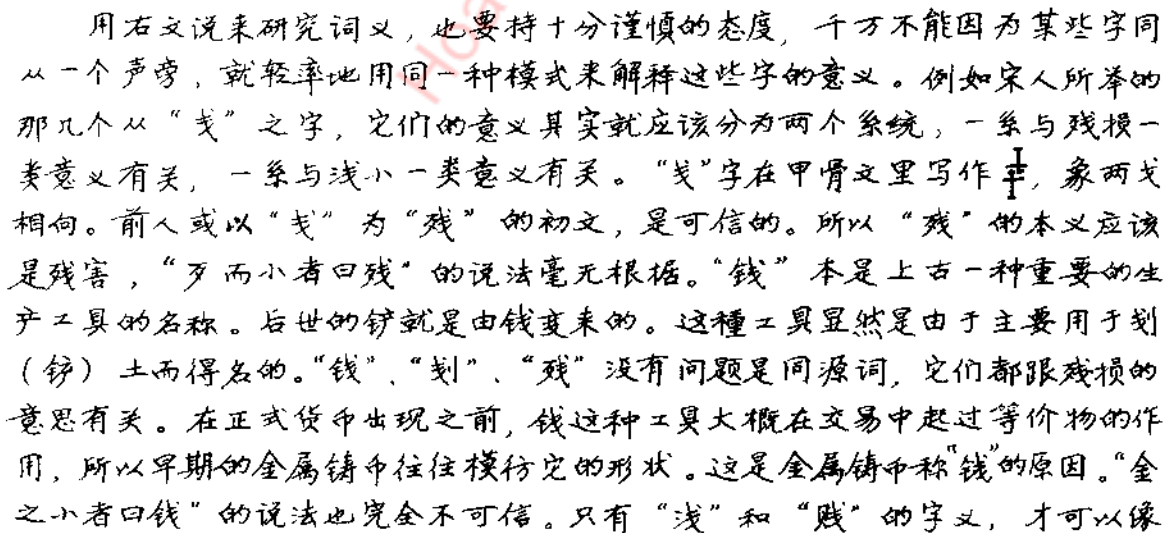 用右文说来研究词义，也要持十分谨慎的态度，千万不能因为某些字同
从一个声旁，就轻率地用同一种模式来解释这些字的意义。例如宋人所举的
那几个从“戋”之字，它们的意义其实就应该分为两个系统，一系与残损一
类意义有关，一系与浅小一类意义有关。“戋”字在甲骨文里写作，象两戈
相向。前人或以“戋”为“残”的初文，是可信的。所以“残”的本义应该
是残害，“歹而小者曰残”的说法毫无根据。“钱”本是上古一种重要的生
产工具的名称。后世的铲就是由钱变来的。这種工具显然是由于主要用于刬
（铲）土而得名的。“钱”、“刬”、“残”没有问题是同源词，它们都跟残损的
意思有关。在正式货币出现之前，钱这种工具大概在交易中起过等价物的作
用，所以早期的金属铸币往往模彷它的形状。这是金属铸币称“钱”的原因。“金
之小者曰钱”的说法也完全不可信。只有“浅”和“贱”的字义，才可以像